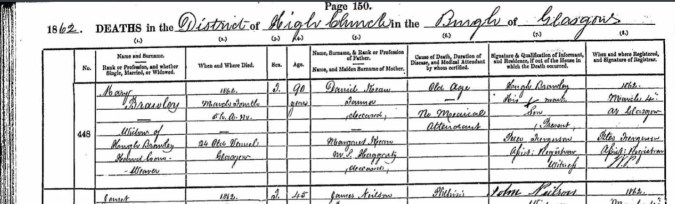 Page 150.
1862. DEATHS in the District of High Church in the Burgh of Glasgow
(1.) (2.) (3.) (4.) (5.) (6.) (7.) (8.)
No.
Name and Surname.
Rank or Profession, and whether Single, Married, or Widowed.
When and Where Died.
Sex.
Age.
Name, Surname, & Rank or Profession of Father.
Name, and Maiden Surname of Mother.
Cause of Death, Duration of Disease, and Medical Attendant by whom certified.
Signature & Qualification of Informant, and Residence, if out of the House in which the Death occurred.
When and where Registered, and Signature of Registrar.
448
Mary
Brawley
Widow of
Hugh Brawley
Hand Loom
Weaver
1862.
March Fourth
24 Old Vennel
Glasgow
90
years
Daniel Kean
Farmer
(deceased)
Margaret Kean
(deceased)
Old Age
No Medical
Attendant
Hugh Brawley
His mark
Son
(Present)
Ferguson
Assist: Registrar
Witness
1862.
March 4th
at Glasgow
Ferguson
Assist: Registrar
Janet
1862.
45
James Neilson
Phthisis
John Neilson
1862.